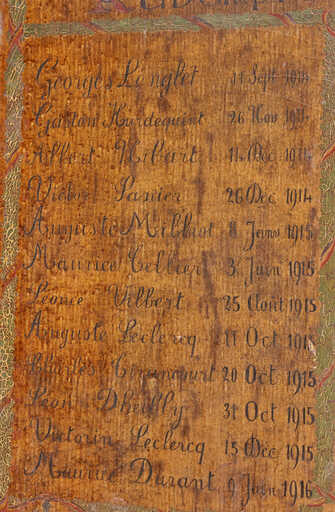 Georges Lenglet 11 Sept 1914
Gaëtan Hurdequint 26 Nov 191
Albert Hibart 11 Dec 191
Victor Lanier 26 Dec 1914
Auguste Milhot 8 Janv 1915
Maurice Cellier 3 Juin 1915
Léonce Vilbert 25 Aout 1915
Auguste Leclercq 11 Oct 1915
Charles 20 Oct 1915
Léon Dheilly 31 Oct 1915
Victorin Leclercq 15 Dec 1915
Maurice Durant 9 Juin 1916